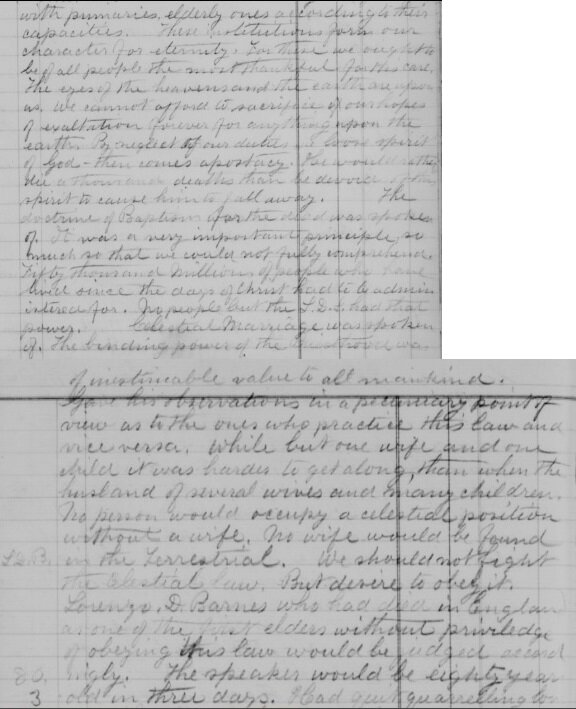 with primaries, elderly ones according to their
capacities. These institutions form our
character for eternity. For these we ought to
be of all people the most thankful for this care.
The eyes of the heavens and the earth are upon
us. We cannot afford to sacrifice of our hopes
of exaltation forever for anything upon the
earth. By neglect of our duties we loose spirit
of God - then comes apostacy. He would rather
die a thousand deaths than be devoid of the
spirit to cause him to fall away. The
doctrine of Baptism for the dead was spoken
of. It was a very important principle, so
much so that we could not fully comprehend.
Fifty thousand millions of people who have
lived since the days of Christ had to be admin
istered for. No people but the L.D.S. had that
power. Celestial Marriage was spoken
of. The binding power of the Priesthood was
of inestimable value to all mankind.
Gave his observations in a pecuniary point of
view as to the ones who practice this law and
vice versa. While but one wife and one
child it was harder to get along, than when the
husband of several wives and many children.
No person would occupy a celestial position
without a wife. No wife would be found
L.D.B. in the Terrestrial. We should not fight
the Celestial law. But desire to obey it.
Lorenzo. D. Barnes who had died in England
as one of the first elders without priviledge
of obeying this law would be judged accord
80. ingly. The speaker would be eighty year
3 old in three days. Had quit quarrelling